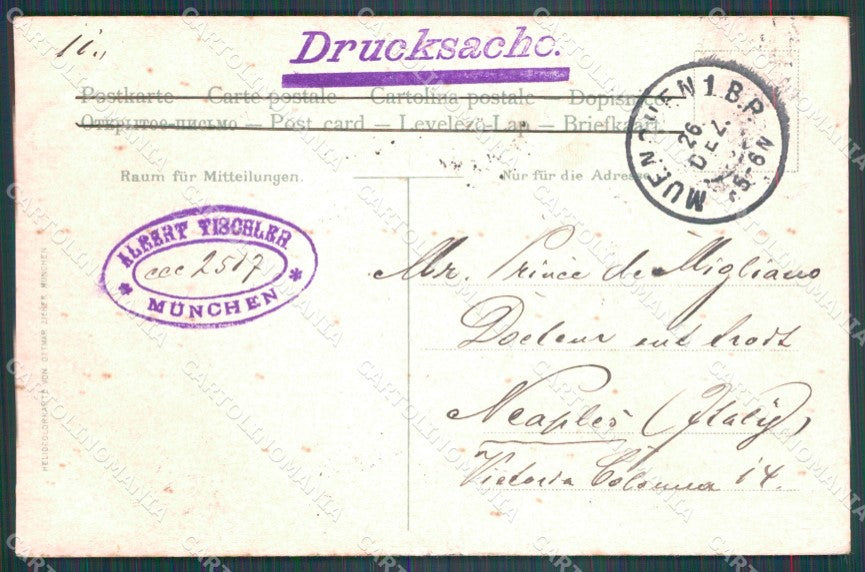 11.
Drucksache.
Postkarte — Carte postale — Cartolina postale — Dopisnice
Открытое письмо — Post card — Levelező-Lap — Briefkaart
MUENCHEN 1. B.P.
26
DEZ.
5-6 N
Raum für Mitteilungen.
Nur für die Adresse
ALBERT TISCHLER
ccc 2517
* MÜNCHEN *
Mr. Prince de Migliano
Docteur
Neaples (Italy)
Victoria Colonna 14.
HELIOCOLORKARTE VON OTTMAR ZIEHER MÜNCHEN
CARTOLINOMANIA